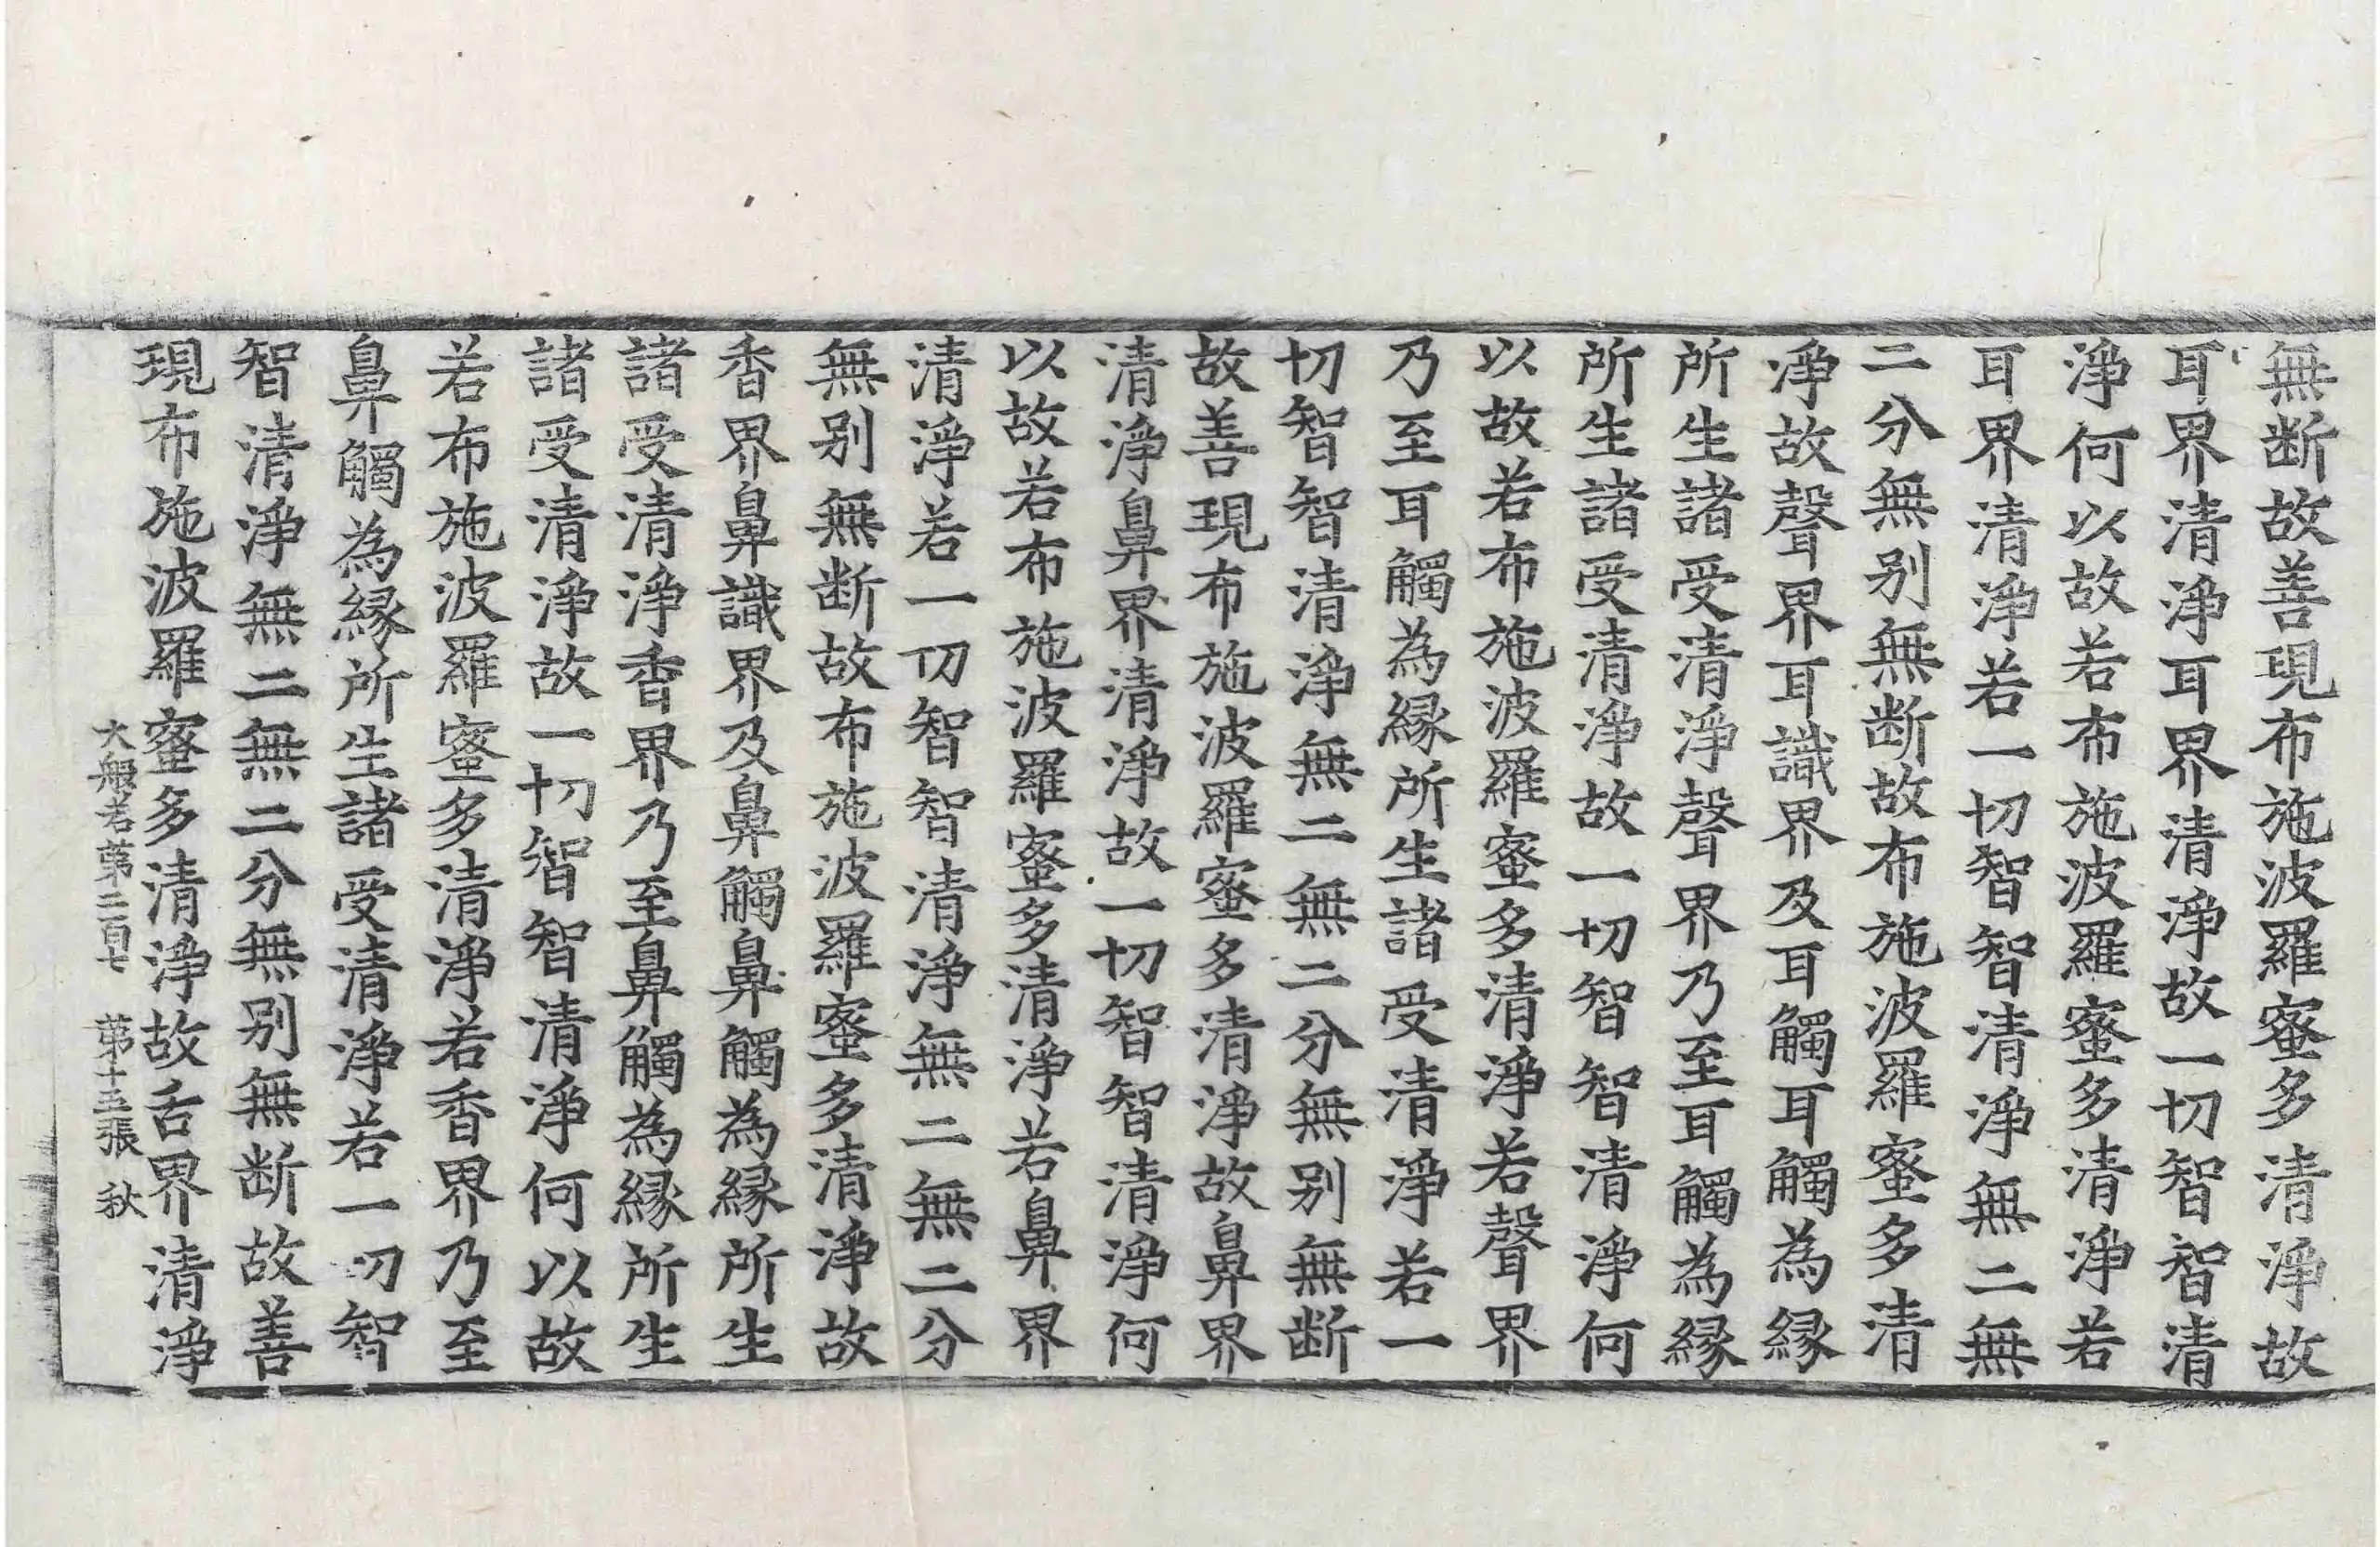 無断故善現布施波羅蜜多清淨故
耳界清淨耳界清淨故一切智智清
淨何以故若布施波羅蜜多清淨若
耳界清淨若一切智智清淨無二無
二分無别無断故布施波羅蜜多清
淨故聲界耳識界及耳觸耳觸為縁
所生諸受清淨聲界乃至耳觸為縁
所生諸受清淨故一切智智清淨何
以故若布施波羅蜜多清淨若聲界
乃至耳觸為縁所生諸受清淨若一
切智智清淨無二無二分無别無断
故善現布施波羅蜜多清淨故鼻界
清淨鼻界清淨故一切智智清淨何
以故若布施波羅蜜多清淨若鼻界
清淨若一切智智清淨無二無二分
無别無断故布施波羅蜜多清淨故
香界鼻識界及鼻觸鼻觸為縁所生
諸受清淨香界乃至鼻觸為縁所生
諸受清淨故一切智智清淨何以故
若布施波羅蜜多清淨若香界乃至
鼻觸為縁所生諸受清淨若一切智
智清淨無二無二分無别無断故善
現布施波羅蜜多清淨故舌界清淨
大般若第二百七 第十五張 秋